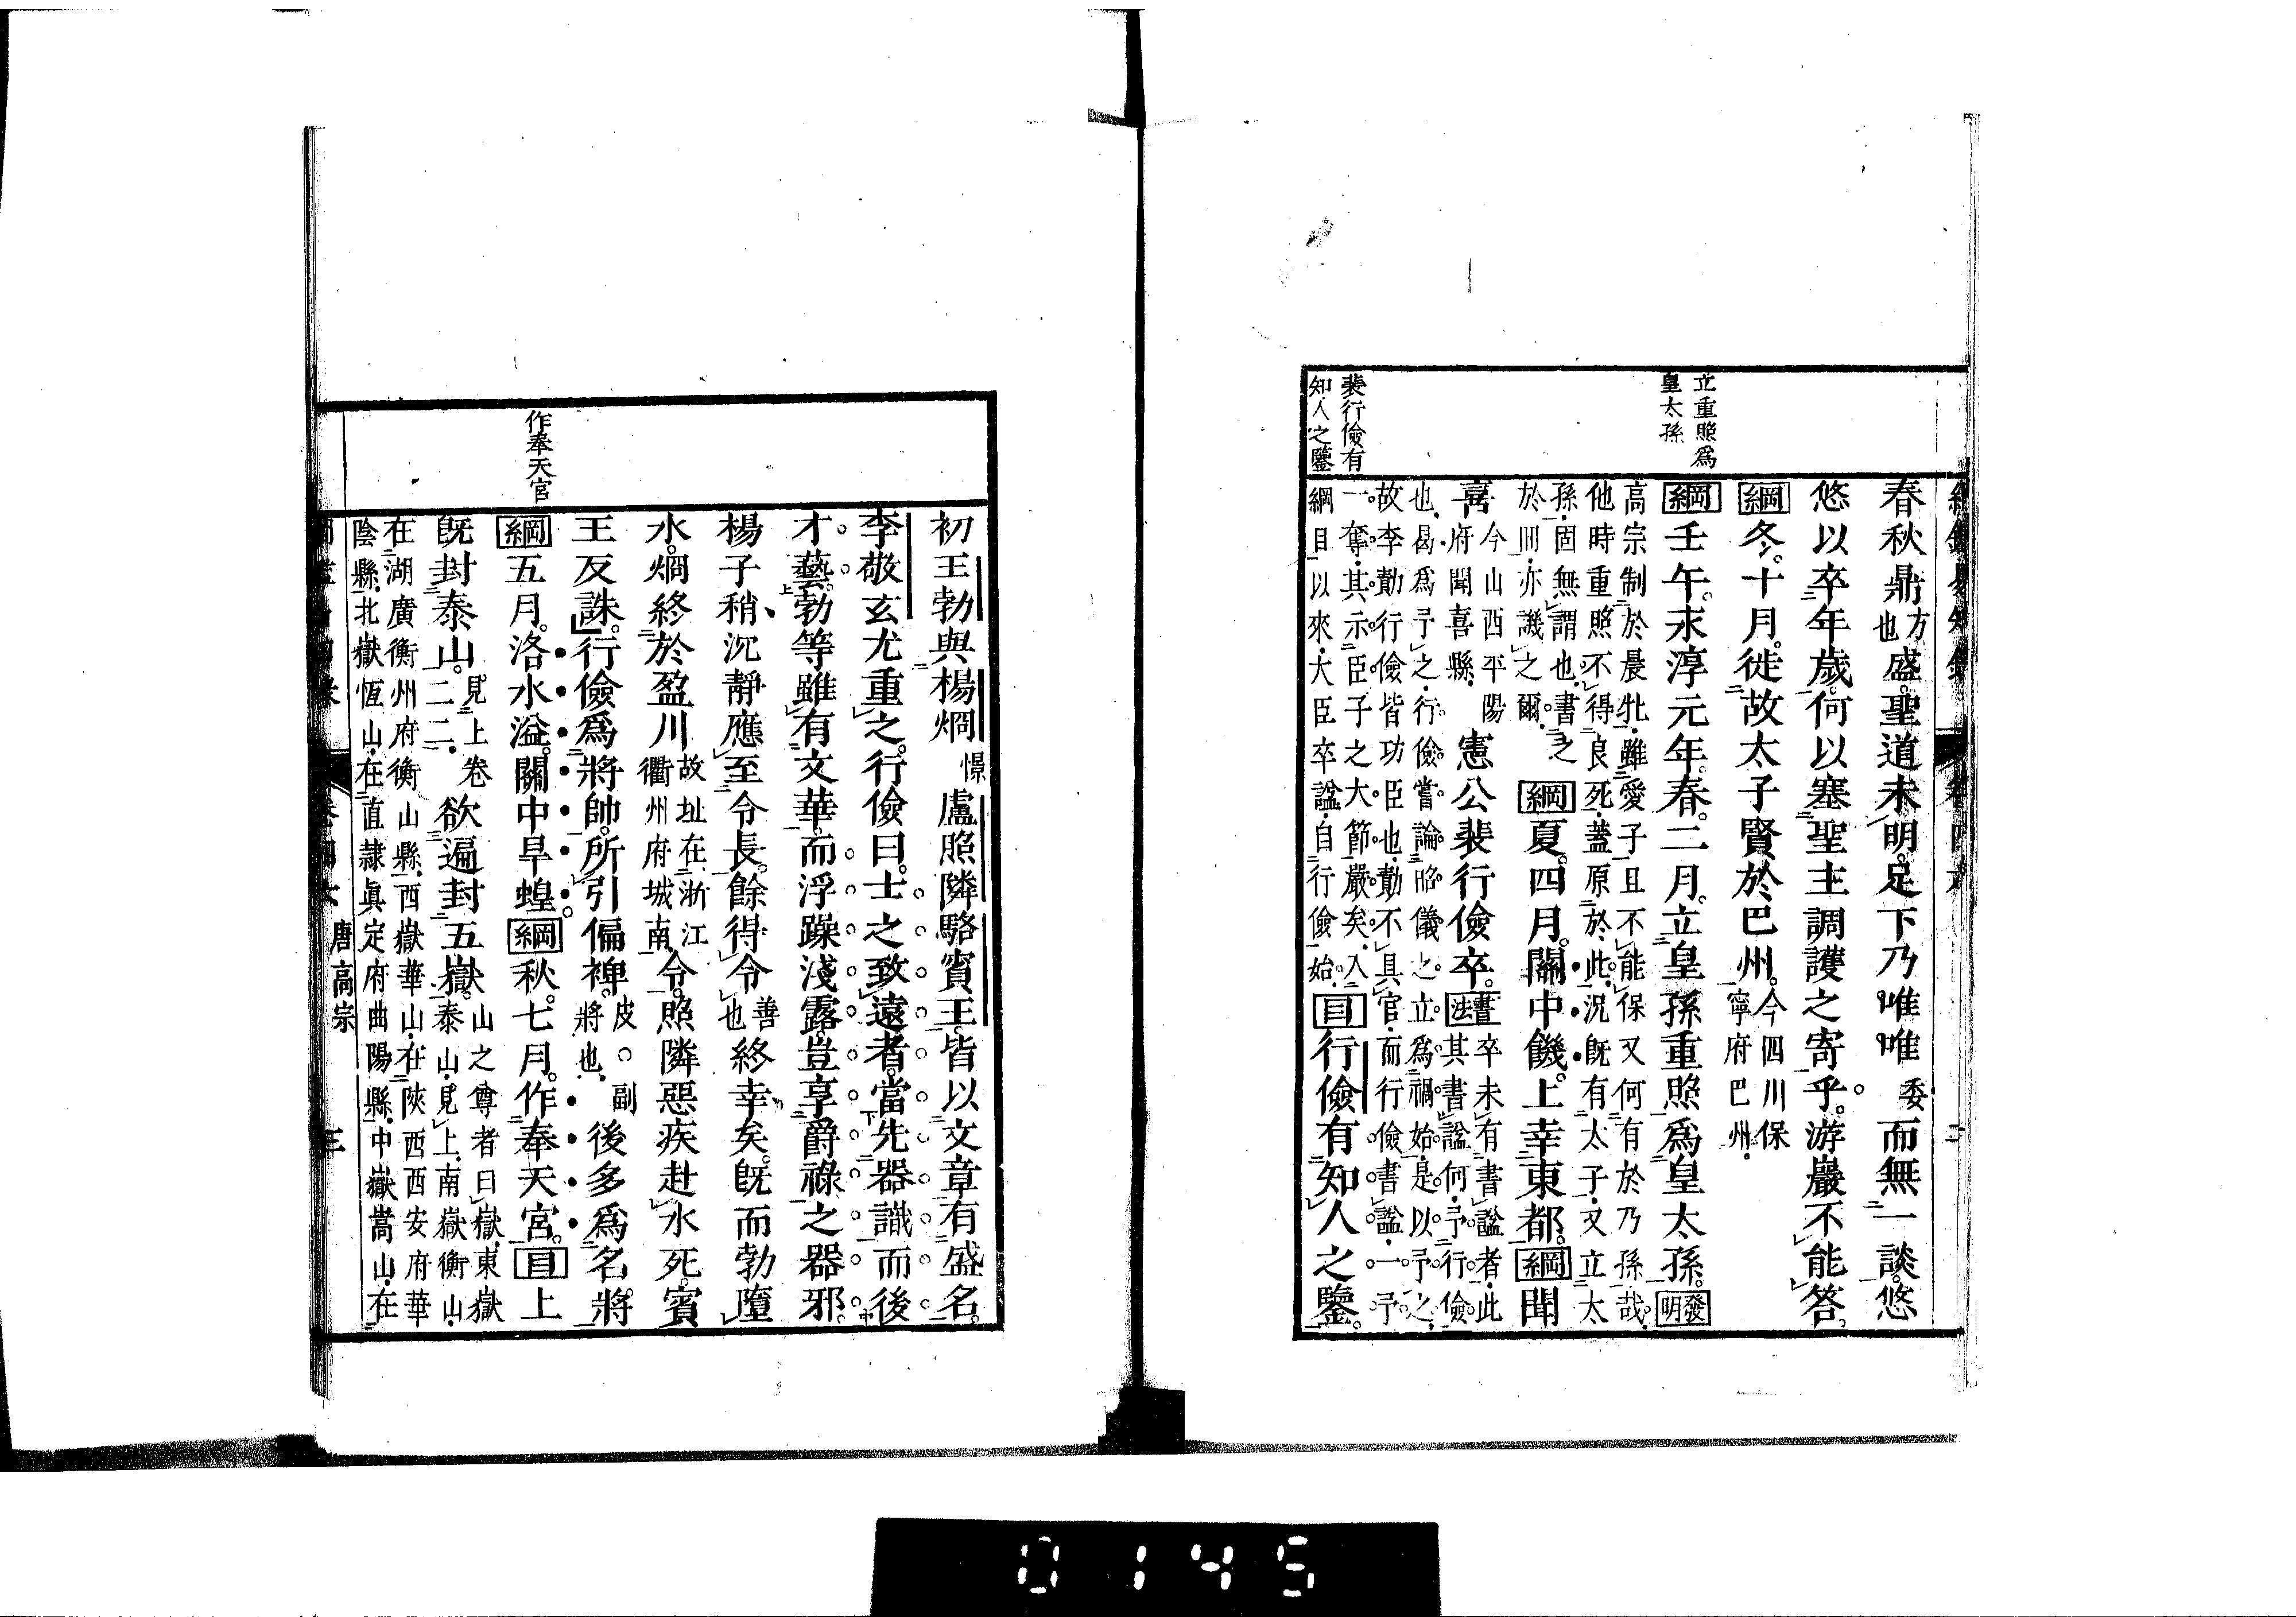 立重照爲
皇太孫
裴行儉有
知人之鑒
春秋鼎方也盛聖道未明足下乃唯唯委而無一談悠
悠以卒年歲何以塞聖主調護之寄乎游巖不能答
綱冬十月徙故太子賢於巴州今四川保寧府巴州
綱壬午永淳元年春二月立皇孫重照爲皇太孫發明
高宗制於晨牝雖愛子且不能保又何有於乃孫哉
他時重照不得良死蓋原於此況旣有太子又立太
孫固無謂也書之
於冊亦譏之爾
綱夏四月關中饑上幸東都綱聞
喜今山西平陽府聞喜縣憲公裴行儉卒書法卒未有書謚者此其書謚何予行儉
也曷爲予之行儉嘗論昭儀之立爲禍始是以予之
故李勣行儉皆功臣也勣不具官而行儉書謚一予
一奪其示臣子之大節嚴矣入
綱目以來大臣卒謚自行儉始
目行儉有知人之鑒
初王勃與楊烱憬盧照隣駱賓王皆以文章有盛名
李敬玄尤重之行儉曰士之致遠者當先器識而後
才藝勃等雖有文華而浮躁淺露豈享爵祿之器邪
楊子稍沉靜應至令長餘得令善也終幸矣旣而勃墮
水烱終於盈川故址在浙江衢州府城南令照隣惡疾赴水死賓
王反誅行儉爲將帥所引偏裨皮○副將也後多爲名將
綱五月洛水溢關中旱蝗綱秋七月作奉天宮目上
旣封泰山見上卷二二欲遍封五嶽山之尊者曰嶽東嶽泰山見上南嶽衡山
在湖廣衡州府衡山縣西嶽華山在陝西西安府華
陰縣北嶽恆山在直隸眞定府曲陽縣中嶽嵩山在
作奉天宮
唐高宗
三
0145